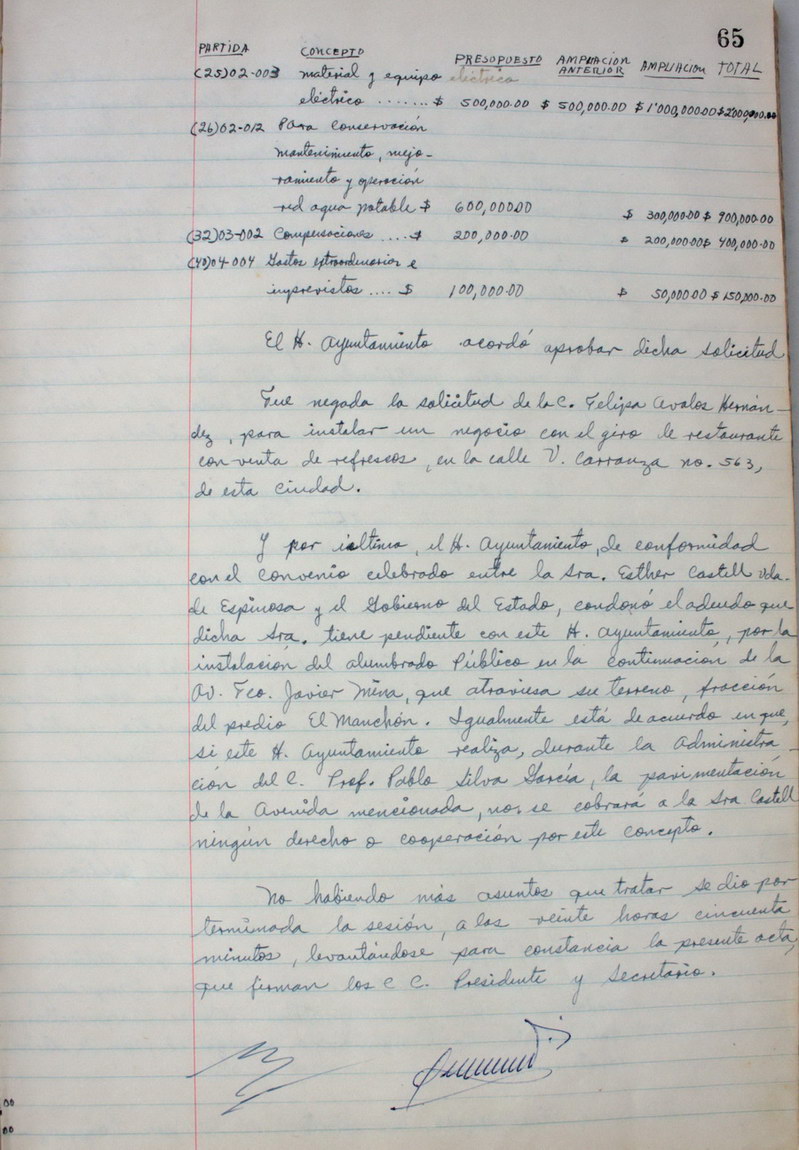 65
PARTIDA CONCEPTO PRESOPUESTO AMPLIACION ANTERIOR AMPLIACION TOTAL
(25)02-003 material y equipo eléctrico
eléctrico ....... $ 500,000.00 $ 500,000.00 $ 1'000,000.00 $ 2000,000.00
(26)02-012 Para conservación
mantenimiento, mejo-
ramiento y operación
red agua potable $ 600,000.00 $ 300,000.00 $ 900,000.00
(32)03-002 Compensaciones .... $ 200,000.00 $ 200,000.00 $ 400,000.00
(40)04-004 Gastos extraordinarios e
imprevistos .... $ 100,000.00 $ 50,000.00 $ 150,000.00
El H. Ayuntamiento acordó aprobar dicha solicitud
Fue negada la solicitud de la C. Felipa Avalos Hernán-
dez, para instalar un negocio con el giro de restaurante
con venta de refrescos, en la calle V. Carranza no. 563,
de esta ciudad.
Y por último, el H. Ayuntamiento, de conformidad
con el convenio celebrado entre la Sra. Esther Castell Vda.
de Espinosa y el Gobierno del Estado, condonó el adeudo que
dicha Sra. tiene pendiente con este H. Ayuntamiento, por la
instalación del alumbrado Público en la continuación de la
Av. Fco. Javier Mina, que atraviesa su terreno, fracción
del predio El Manchón. Igualmente está de acuerdo en que,
si este H. Ayuntamiento realiza, durante la Administra-
ción del C. Prof. Pablo Silva García, la pavimentación
de la Avenida mencionada, no se cobrará a la Sra Castell
ningún derecho o cooperación por este concepto.
No habiendo más asuntos que tratar se dio por
terminada la sesión, a las veinte horas cincuenta
minutos, levantándose para constancia la presente acta,
que firman los C C. Presidente y Secretario.
00
00